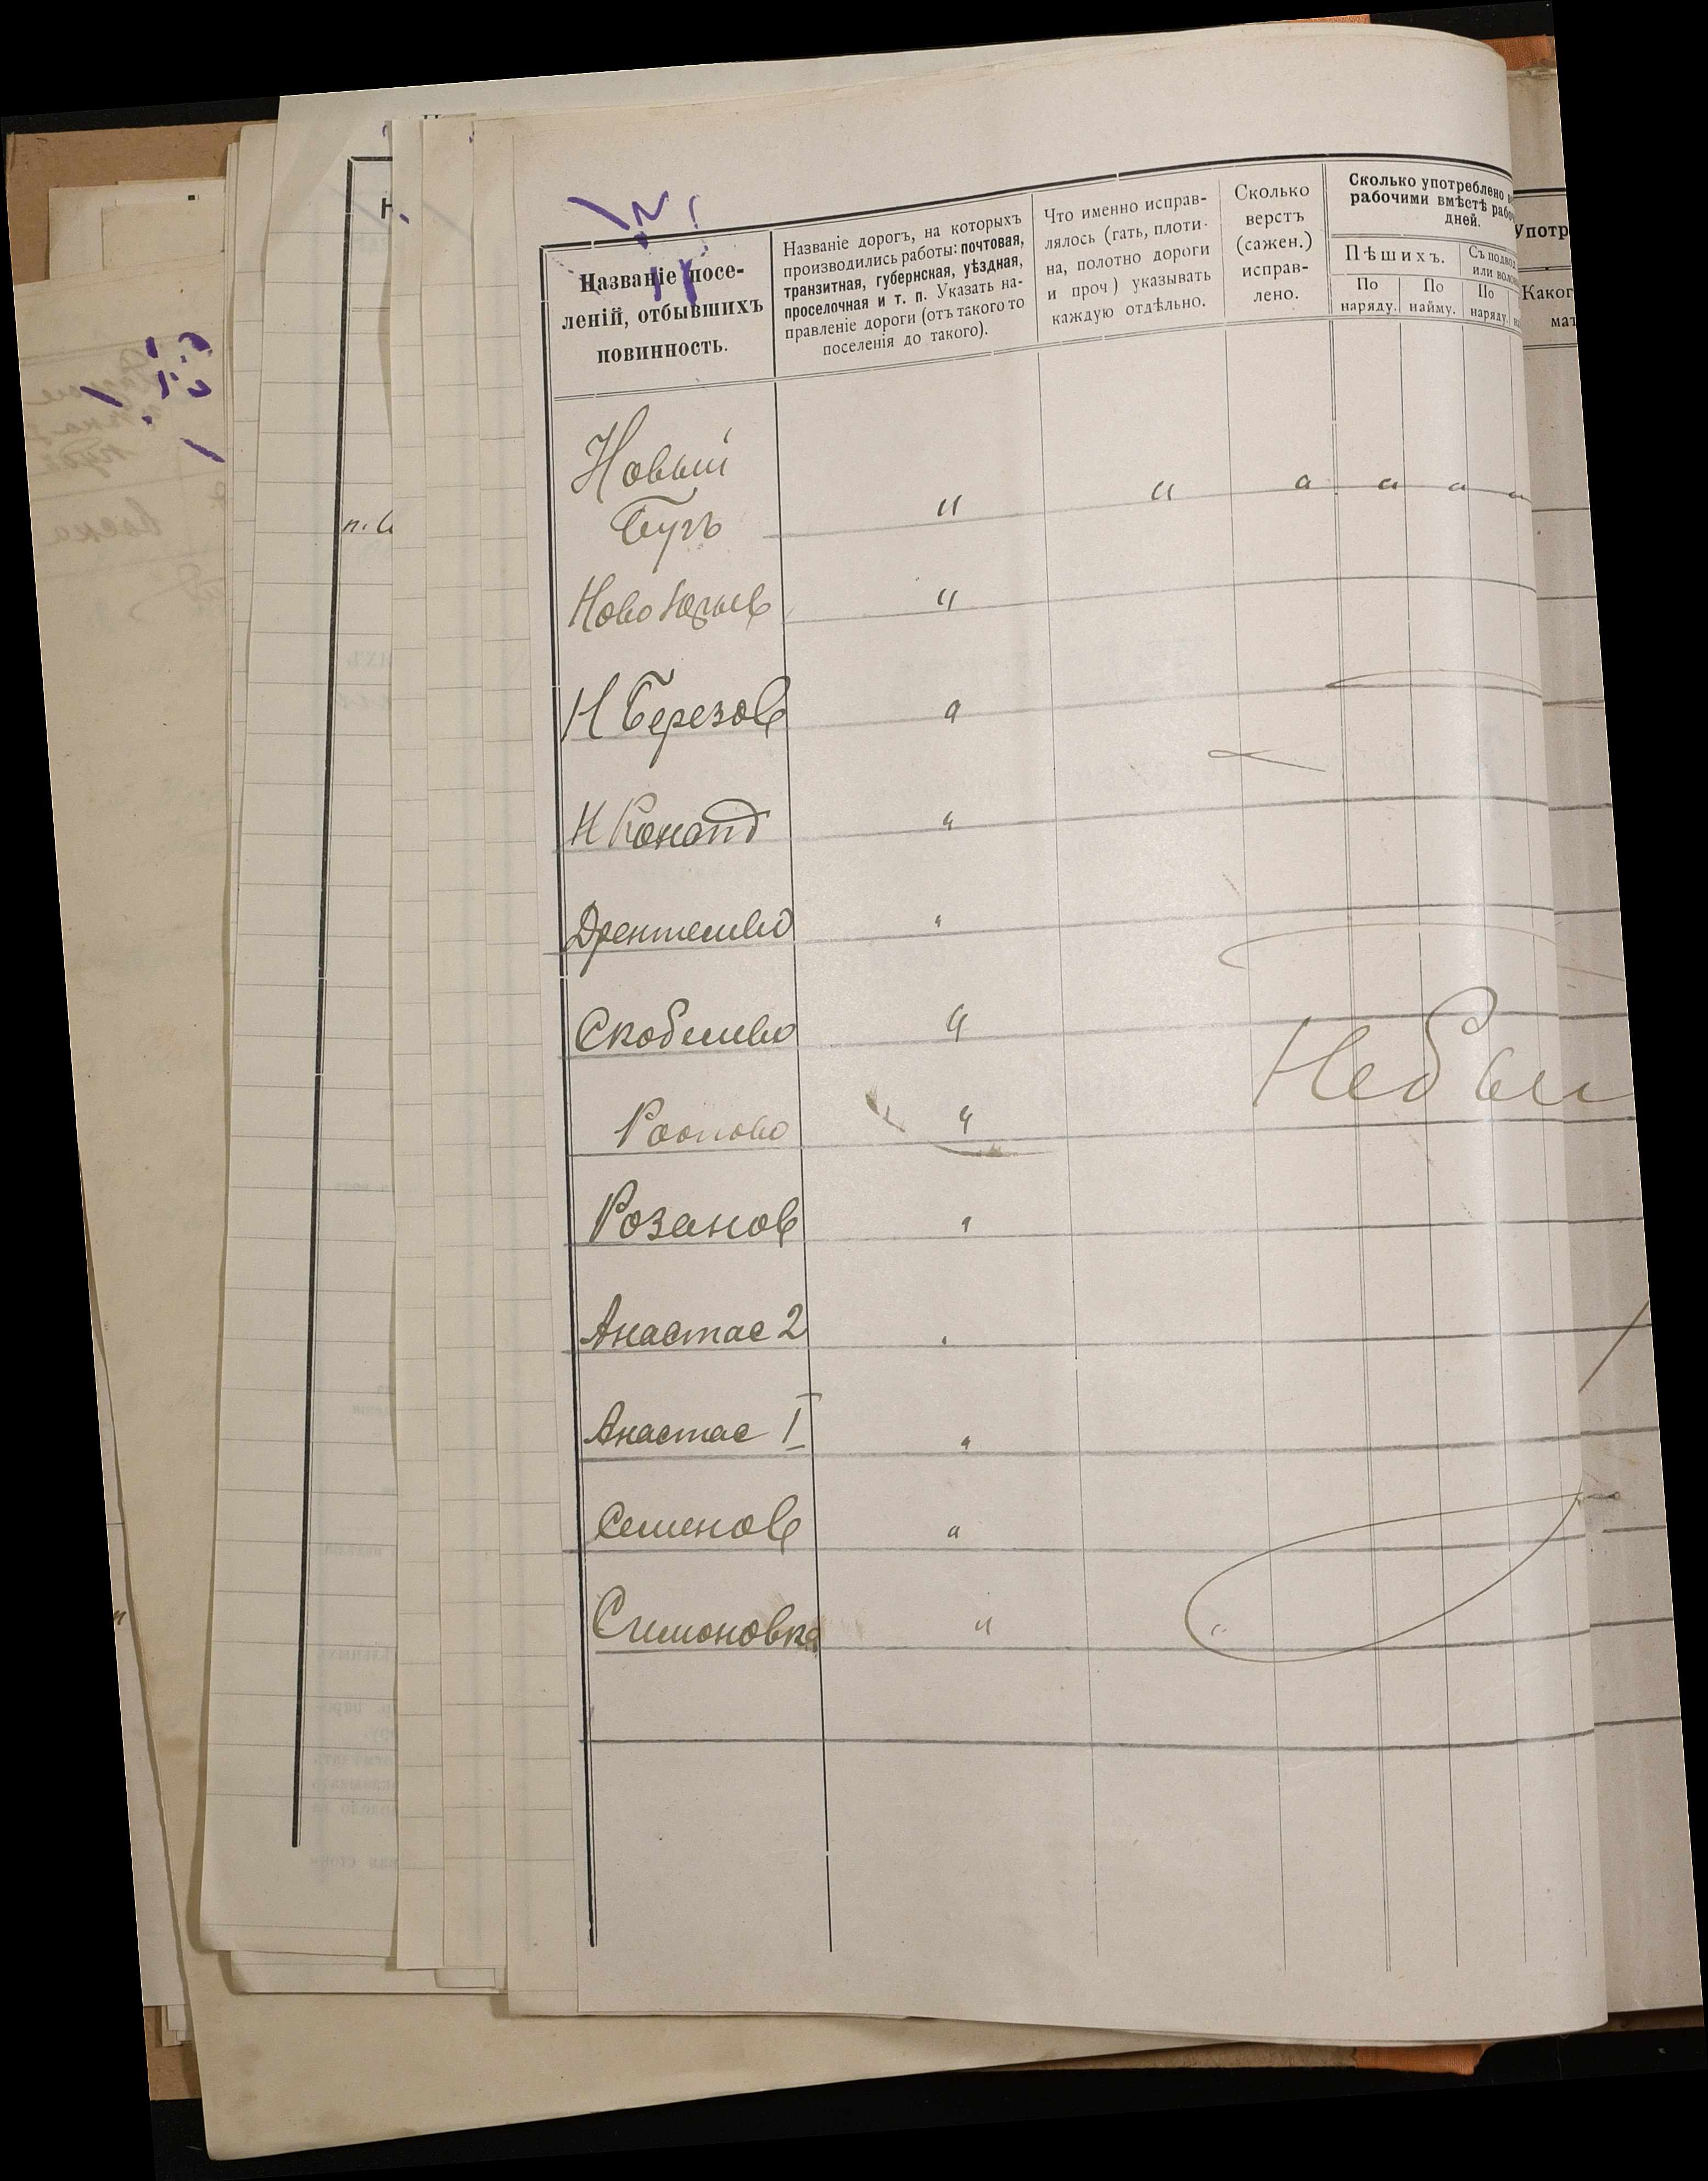 Названіе посе-
леній, отбывшихъ
повинность.
Названіе дорогъ, на которыхъ
производились работы: почтовая,
транзитная, губернская, уѣздная,
проселочная и т. п. Указать на-
правленіе дороги (отъ такого то
поселенія до такого).
Что именно исправ-
лялось (гать, плоти-
на, полотно дороги
и проч) указывать
каждую отдѣльно.
Сколько
верстъ
(сажен.)
исправ-
лено.
Сколько употреблено
рабочими вмѣстѣ рабо
дней.
Пѣшихъ.
Съ подвод
или вол
По
наряду.
По
найму.
По
наряду.
Употр
Каког
мат
Новый
Бугъ
" " " " " "
Ново Юрьев "
Н Березов "
Н Конст "
Дрентельно "
Скобелево "
Роопово "
Розанов "
Анастас 2 "
Анастас I "
Семенов "
Симоновка " "
Небыл